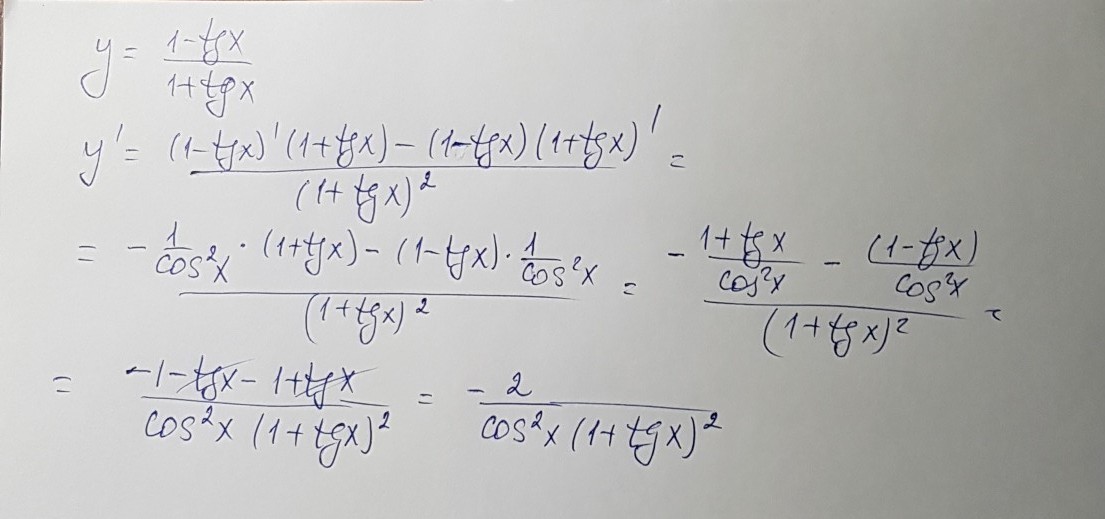 y = (1-tgx)/(1+tgx)
y' = ((1-tgx)'(1+tgx) - (1-tgx)(1+tgx)')/(1+tgx)² =
= (-1/cos²x · (1+tgx) - (1-tgx) · 1/cos²x)/(1+tgx)² = (-(1+tgx)/cos²x - (1-tgx)/cos²x)/(1+tgx)² =
= (-1-tgx-1+tgx)/(cos²x (1+tgx)²) = (-2)/(cos²x (1+tgx)²)